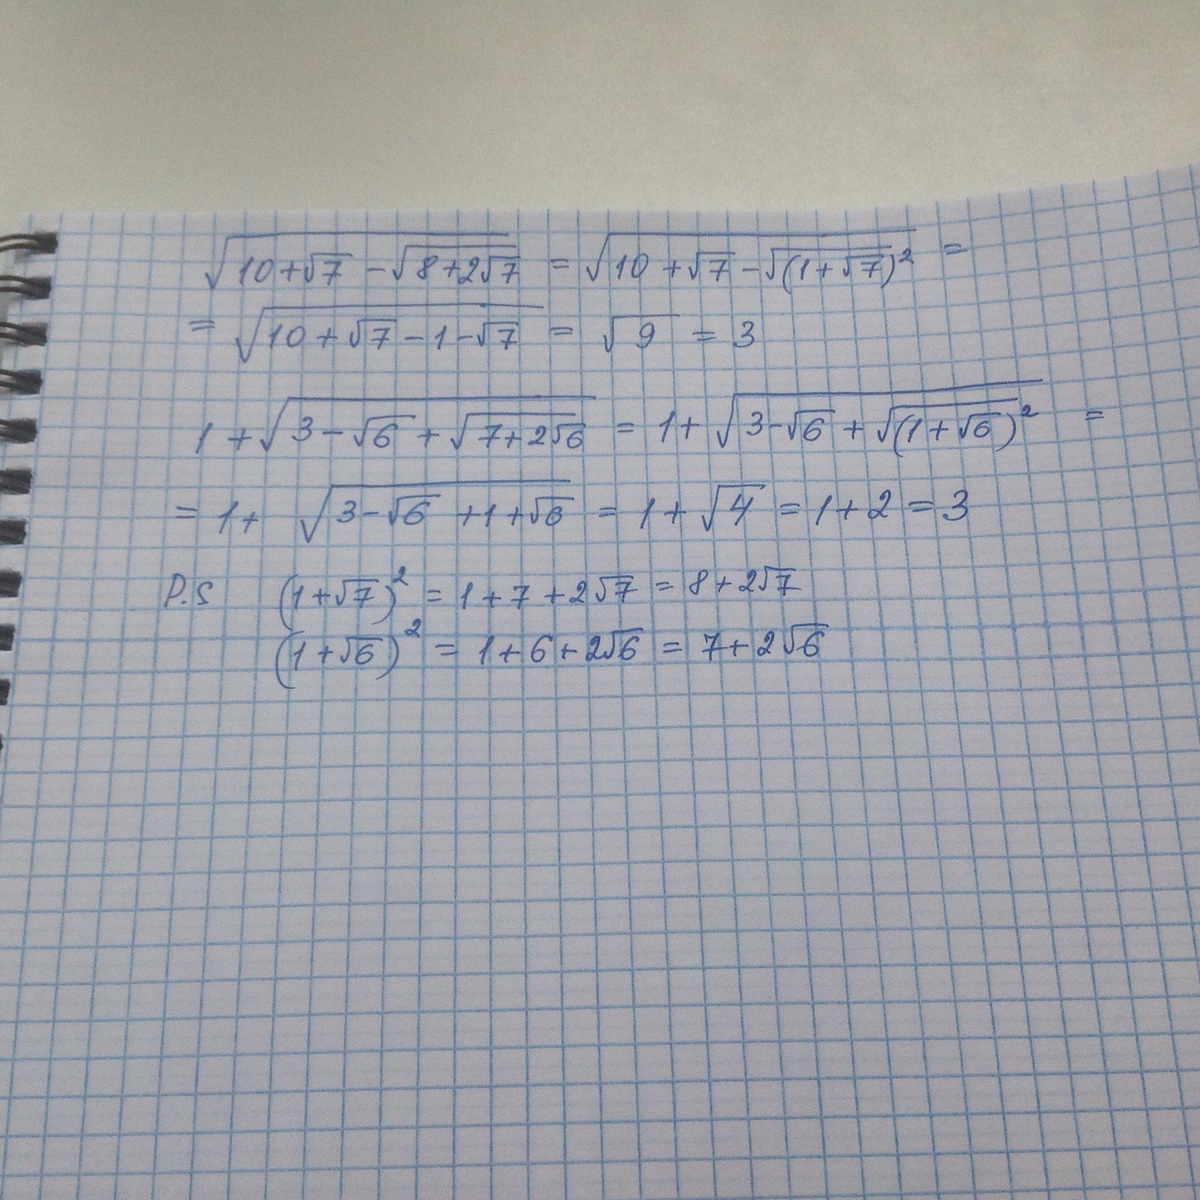 √(10+√7 − √(8+2√7)) = √(10+√7 − √((1+√7)²)) =
= √(10+√7−1−√7) = √9 = 3
1+√(3−√6 + √(7+2√6)) = 1+√(3−√6 + √((1+√6)²)) =
= 1+ √(3−√6 +1+√6) = 1+√4 = 1+2 = 3
P.S (1+√7)² = 1+7+2√7 = 8+2√7
(1+√6)² = 1+6+2√6 = 7+2√6